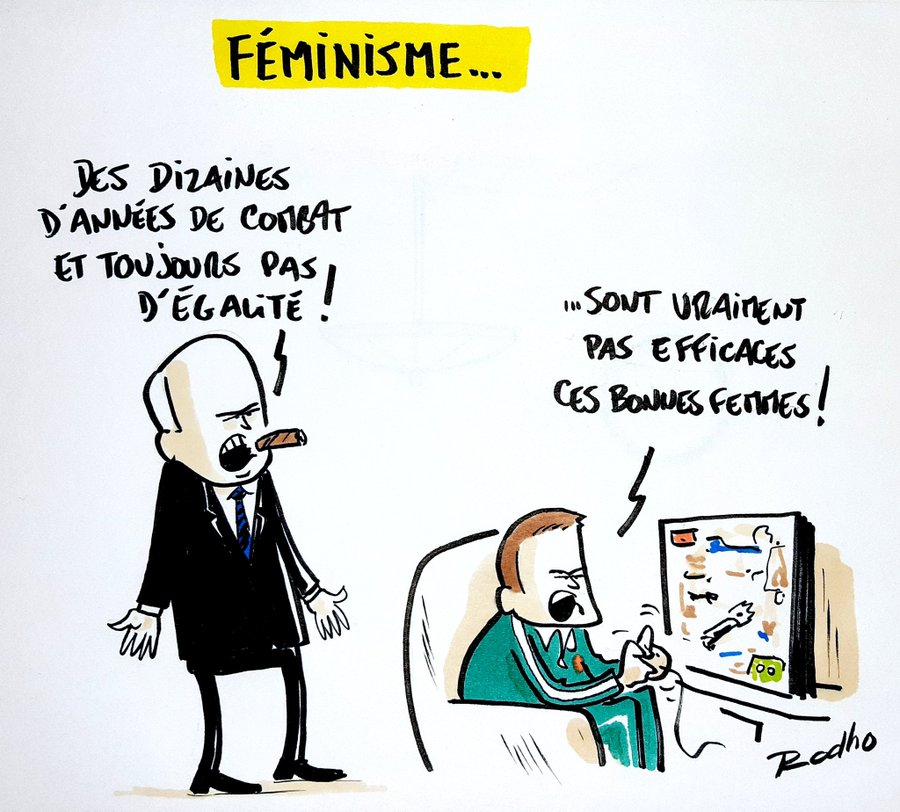 FÉMINISME...
DES DIZAINES
D'ANNÉES DE COMBAT
ET TOUJOURS PAS
D'ÉGALITÉ !
...SONT VRAIMENT
PAS EFFICACES
CES BONNES FEMMES !
Rodho